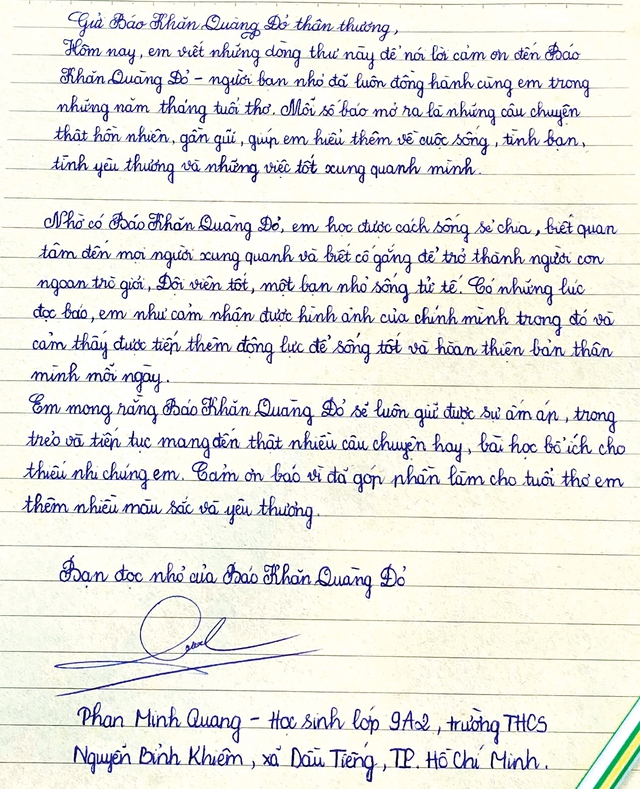 Gửi Báo Khăn Quàng Đỏ thân thương,
Hôm nay, em viết những dòng thư này để nói lời cảm ơn đến Báo
Khăn Quàng Đỏ - người bạn nhỏ đã luôn đồng hành cùng em trong
những năm tháng tuổi thơ. Mỗi số báo mở ra là những câu chuyện
thật hồn nhiên, gần gũi, giúp em hiểu thêm về cuộc sống, tình bạn,
tình yêu thương và những việc tốt xung quanh mình.
Nhờ có Báo Khăn Quàng Đỏ, em học được cách sống sẻ chia, biết quan
tâm đến mọi người xung quanh và biết cố gắng để trở thành người con
ngoan trò giỏi, Đội viên tốt, một bạn nhỏ sống tử tế. Có những lúc
đọc báo, em như cảm nhận được hình ảnh của chính mình trong đó và
cảm thấy được tiếp thêm động lực để sống tốt và hoàn thiện bản thân
mình mỗi ngày.
Em mong rằng Báo Khăn Quàng Đỏ sẽ luôn giữ được sự ấm áp, trong
trẻo và tiếp tục mang đến thật nhiều câu chuyện hay, bài học bổ ích cho
thiếu nhi chúng em. Cảm ơn báo vì đã góp phần làm cho tuổi thơ em
thêm nhiều màu sắc và yêu thương.
Bạn đọc nhỏ của Báo Khăn Quàng Đỏ
Phan Minh Quang - Học sinh lớp 9A2, trường THCS
Nguyễn Bỉnh Khiêm, xã Dầu Tiếng, TP. Hồ Chí Minh.